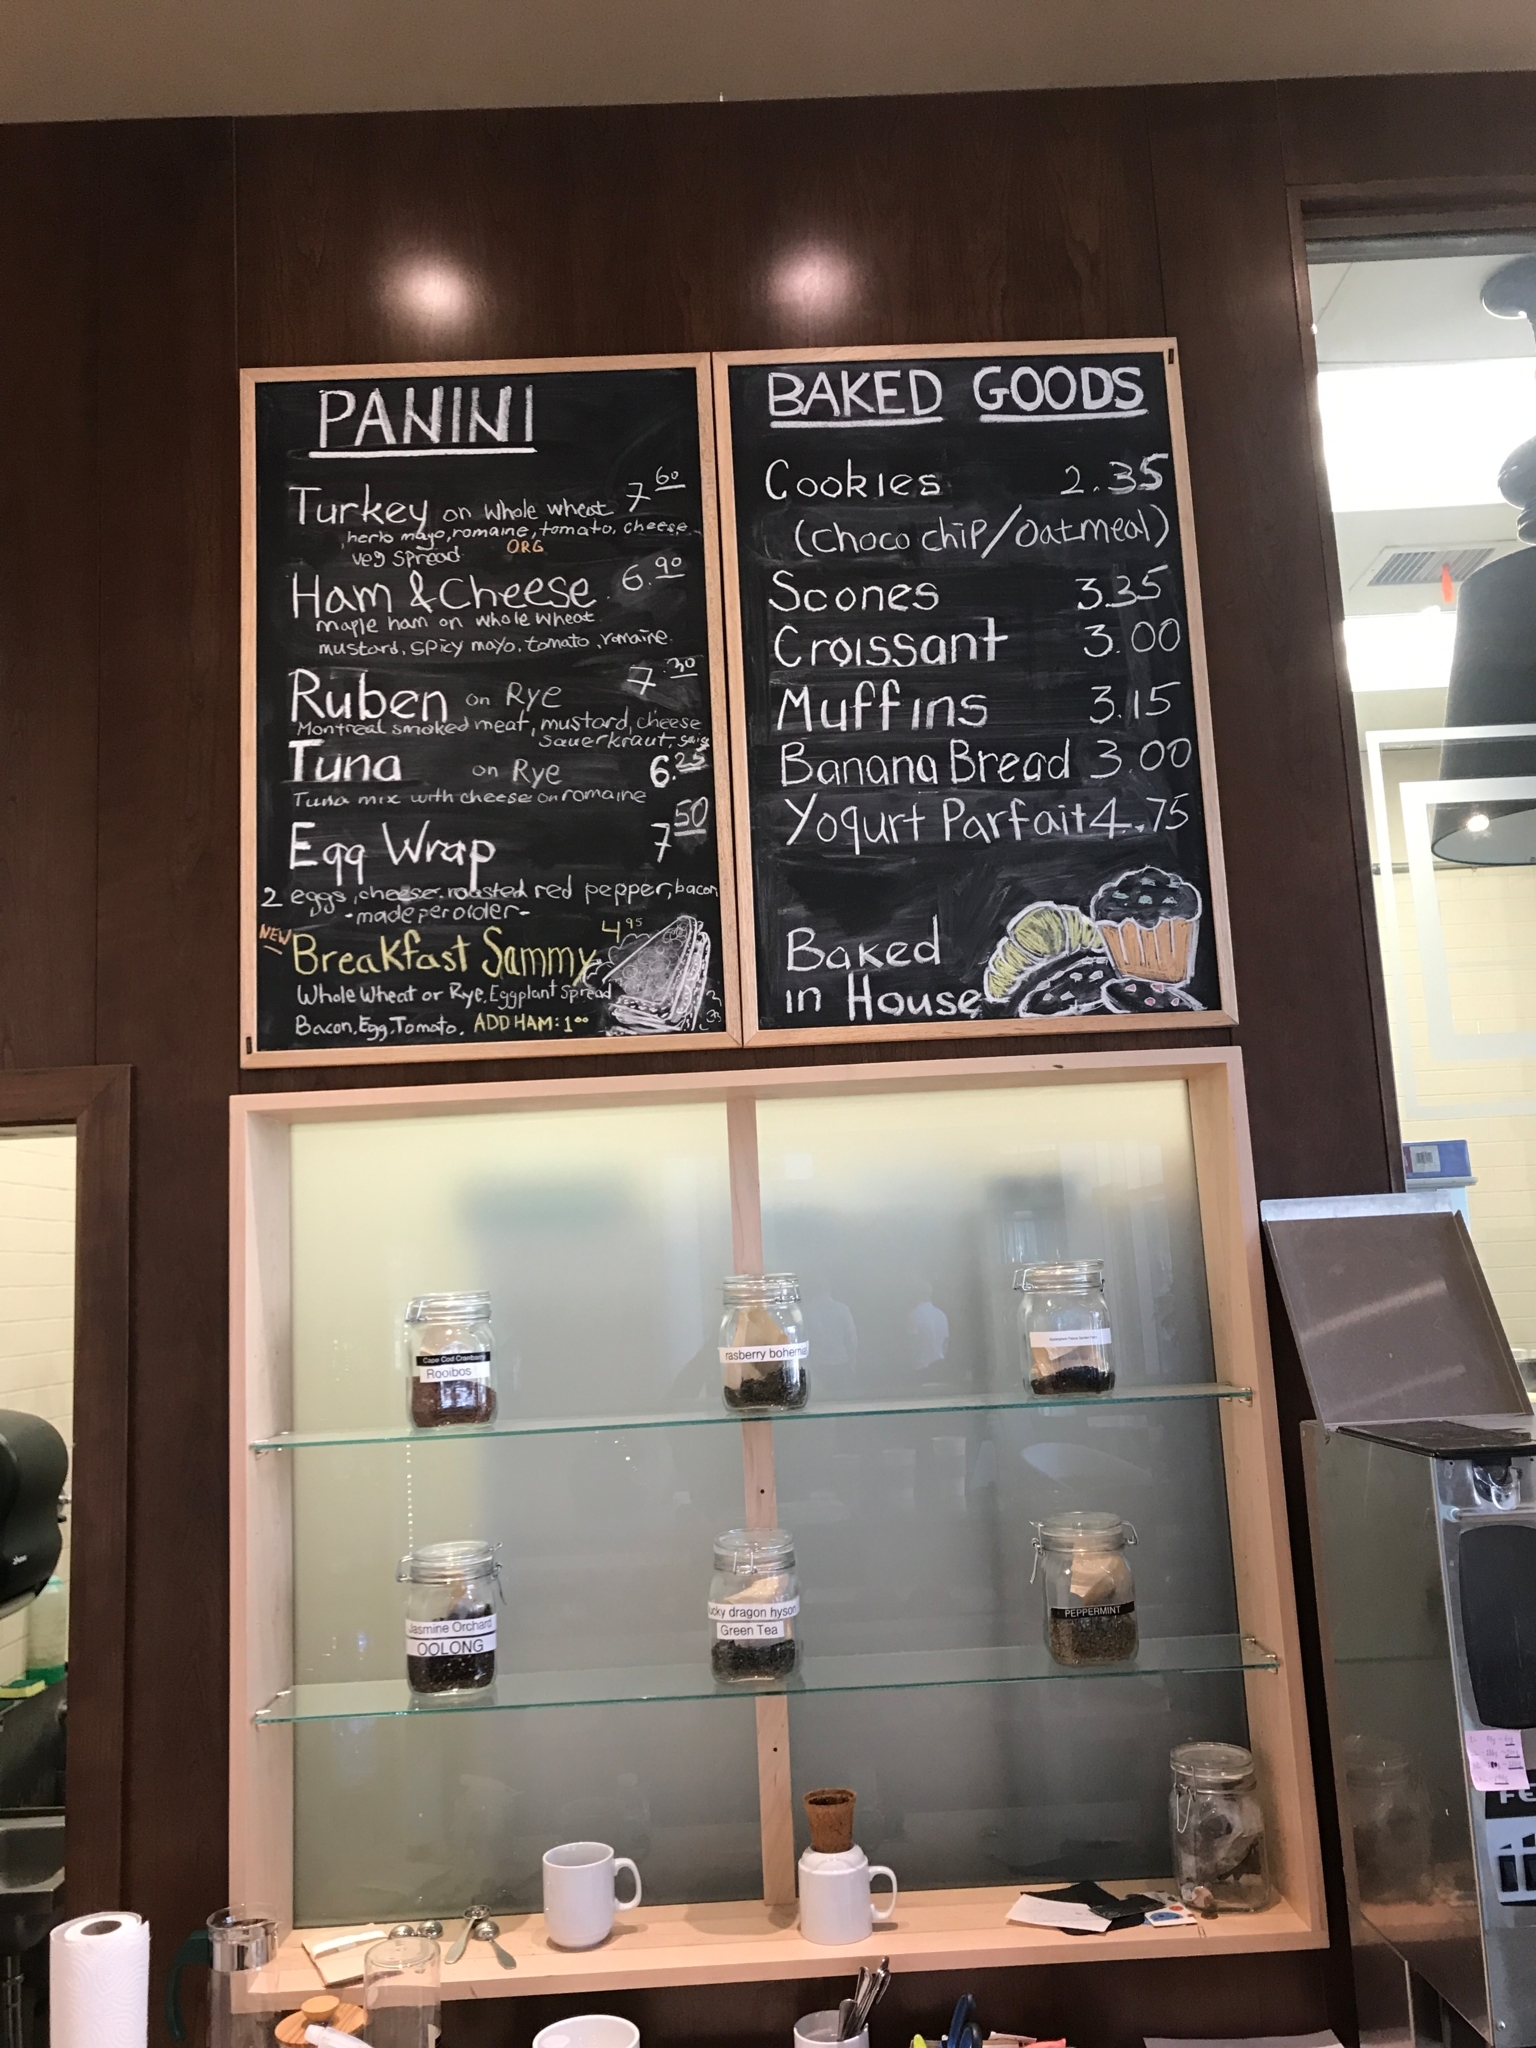 PANINI
Turkey on whole wheat 7.60
herb mayo, romaine, tomato, cheese
veg spread ORG
Ham & Cheese 6.90
maple ham on whole wheat
mustard, spicy mayo, tomato, romaine.
Ruben on Rye 7.30
Montreal smoked meat, mustard, cheese
sauerkraut,
Tuna on Rye 6.25
Tuna mix with cheese on romaine
Egg Wrap 7.50
2 eggs, cheese, roasted red pepper, bacon
- made per order -
NEW
Breakfast Sammy 4.95
Whole Wheat or Rye, Eggplant Spread
Bacon, Egg, Tomato. ADD HAM: 1.00
BAKED GOODS
Cookies 2.35
(Choco chip/Oatmeal)
Scones 3.35
Croissant 3.00
Muffins 3.15
Banana Bread 3.00
Yogurt Parfait 4.75
Baked
in House
Cape Cod
Rooibos
rasberry
Jasmine Orchard
OOLONG
dragon hyson
Green Tea
PEPPERMINT